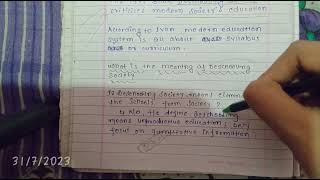 criticizes modern society's education
According to Ivan modern education
system is all about syllabus
or curriculum.
What is the meaning of Deschooling
Society
Deschooling society means
the schools from society ?
No, He define deschooling
means unproductive education
focus on quantitative information.
31/7/2023